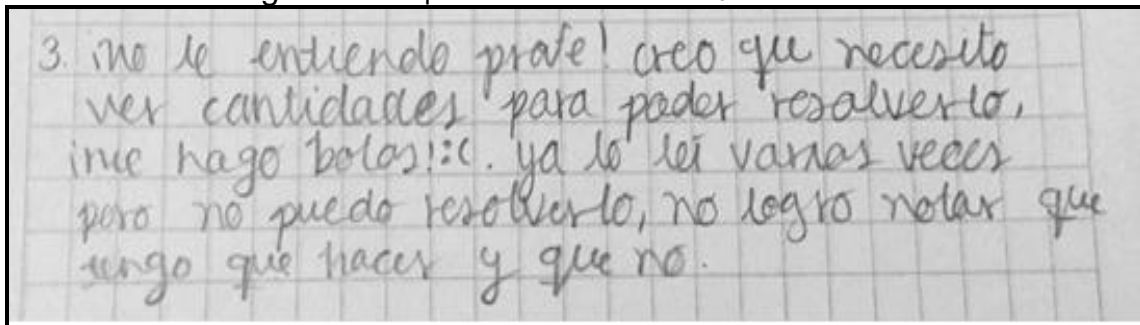 3. ¡no le entiendo profe! creo que necesito
ver cantidades para poder resolverlo,
¡me hago bolas! :(. ya lo leí varias veces
pero no puedo resolverlo, no logro notar que
tengo que hacer y que no.